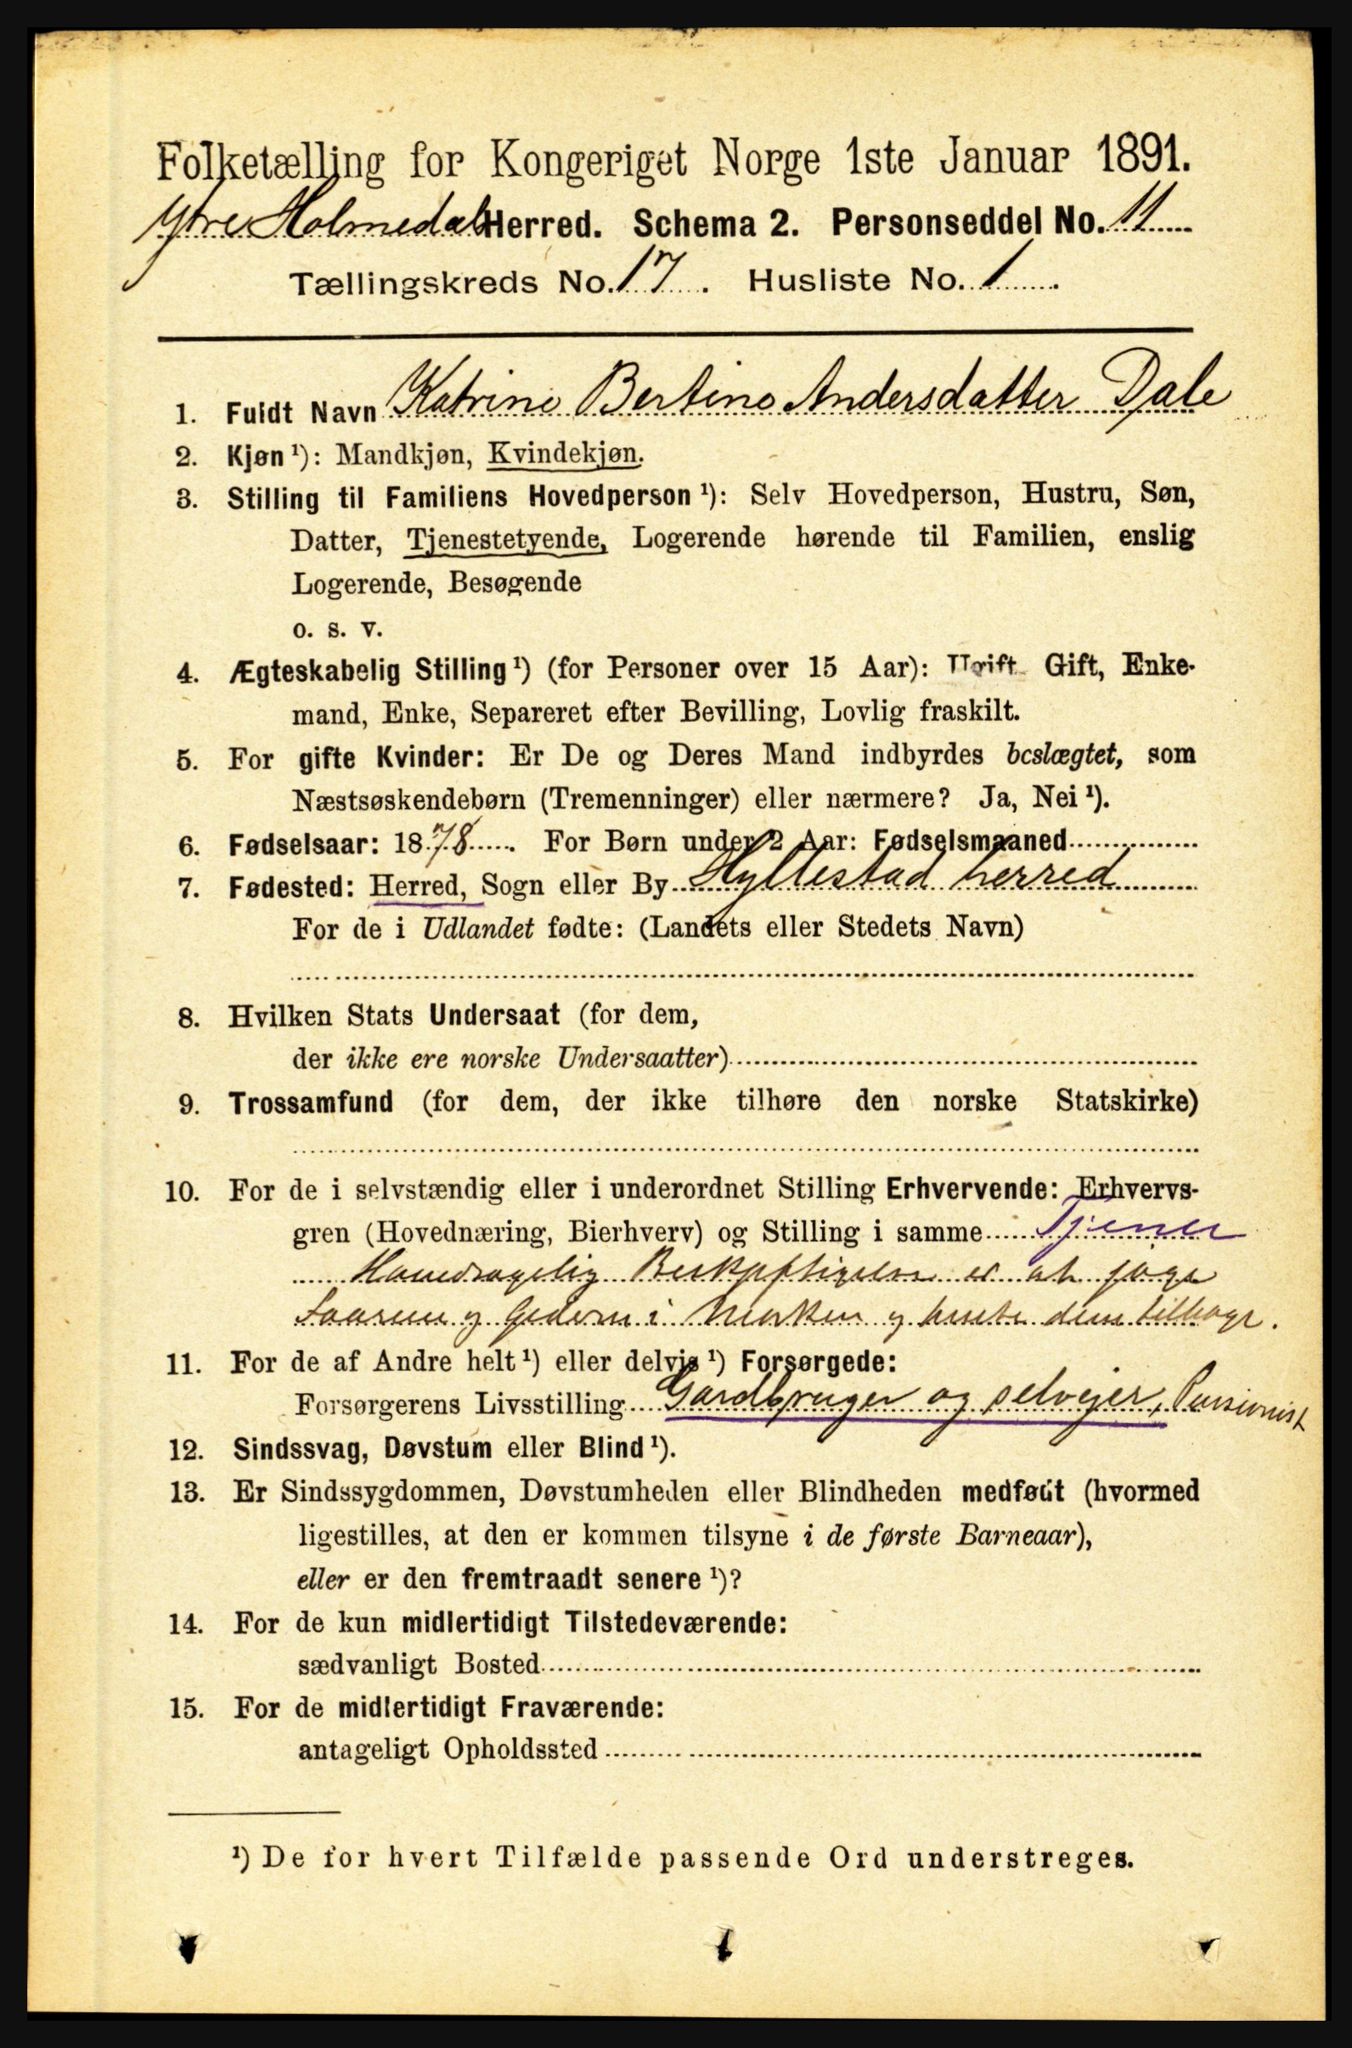 Folketælling for Kongeriget Norge 1ste Januar 1891.
Ytre Holmedal Herred. Schema 2. Personseddel No. 11
Tællingskreds No. 17. Husliste No. 1.
1. Fuldt Navn Katrine Bertine Andersdatter Dale
2. Kjøn ¹): Mandkjøn, Kvindekjøn.
3. Stilling til Familiens Hovedperson ¹): Selv Hovedperson, Hustru, Søn,
Datter, Tjenestetyende, Logerende hørende til Familien, enslig
Logerende, Besøgende
o. s. v.
4. Ægteskabelig Stilling ¹) (for Personer over 15 Aar): Ugift Gift, Enke-
mand, Enke, Separeret efter Bevilling, Lovlig fraskilt.
5. For gifte Kvinder: Er De og Deres Mand indbyrdes beslægtet, som
Næstsøskendebørn (Tremenninger) eller nærmere? Ja, Nei ¹).
6. Fødselsaar: 1878. For Børn under 2 Aar: Fødselsmaaned
7. Fødested: Herred, Sogn eller By Hyllestad herred
For de i Udlandet fødte: (Landets eller Stedets Navn)
8. Hvilken Stats Undersaat (for dem,
der ikke ere norske Undersaatter)
9. Trossamfund (for dem, der ikke tilhøre den norske Statskirke)
10. For de i selvstændig eller i underordnet Stilling Erhvervende: Erhvervs-
gren (Hovednæring, Bierhverv) og Stilling i samme Tjener
er at jage
Faarene og Gederne i Marken og hente dem tilbage.
11. For de af Andre helt ¹) eller delvis ¹) Forsørgede:
Forsørgerens Livsstilling Gardbruger og selvejer, Pensionist
12. Sindssvag, Døvstum eller Blind ¹).
13. Er Sindssygdommen, Døvstumheden eller Blindheden medfødt (hvormed
ligestilles, at den er kommen tilsyne i de første Barneaar),
eller er den fremtraadt senere ¹)?
14. For de kun midlertidigt Tilstedeværende:
sædvanligt Bosted
15. For de midlertidigt Fraværende:
antageligt Opholdssted
¹) De for hvert Tilfælde passende Ord understreges.